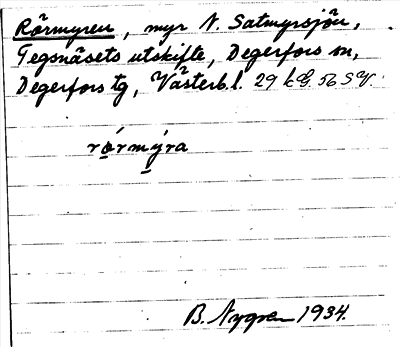 Rörmyren, myr N. Satmyrsjön,
Tegsnäsets utskifte, Degerfors sn,
Degerfors tg, Västerb. l. 29 kG. 56 SV.
rórmýra
B. Nygren 1934.